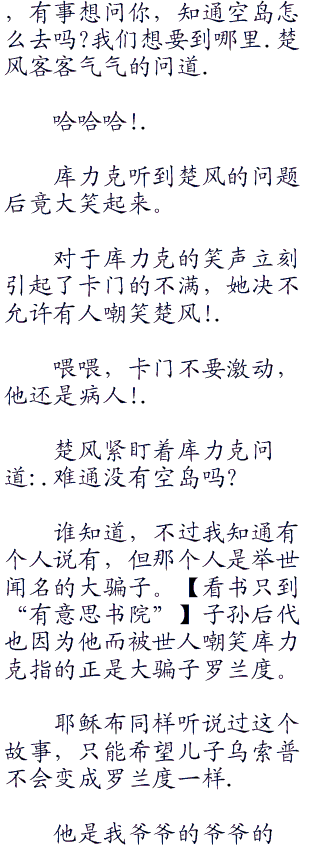 ，有事想问你，知通空岛怎
么去吗?我们想要到哪里.楚
风客客气气的问道.
哈哈哈!.
库力克听到楚风的问题
后竟大笑起来。
对于库力克的笑声立刻
引起了卡门的不满，她决不
允许有人嘲笑楚风!.
喂喂，卡门不要激动，
他还是病人!.
楚风紧盯着库力克问
道:.难通没有空岛吗?
谁知道，不过我知通有
个人说有，但那个人是举世
闻名的大骗子。【看书只到
“有意思书院”】子孙后代
也因为他而被世人嘲笑库力
克指的正是大骗子罗兰度。
耶稣布同样听说过这个
故事，只能希望儿子乌索普
不会变成罗兰度一样.
他是我爷爷的爷爷的